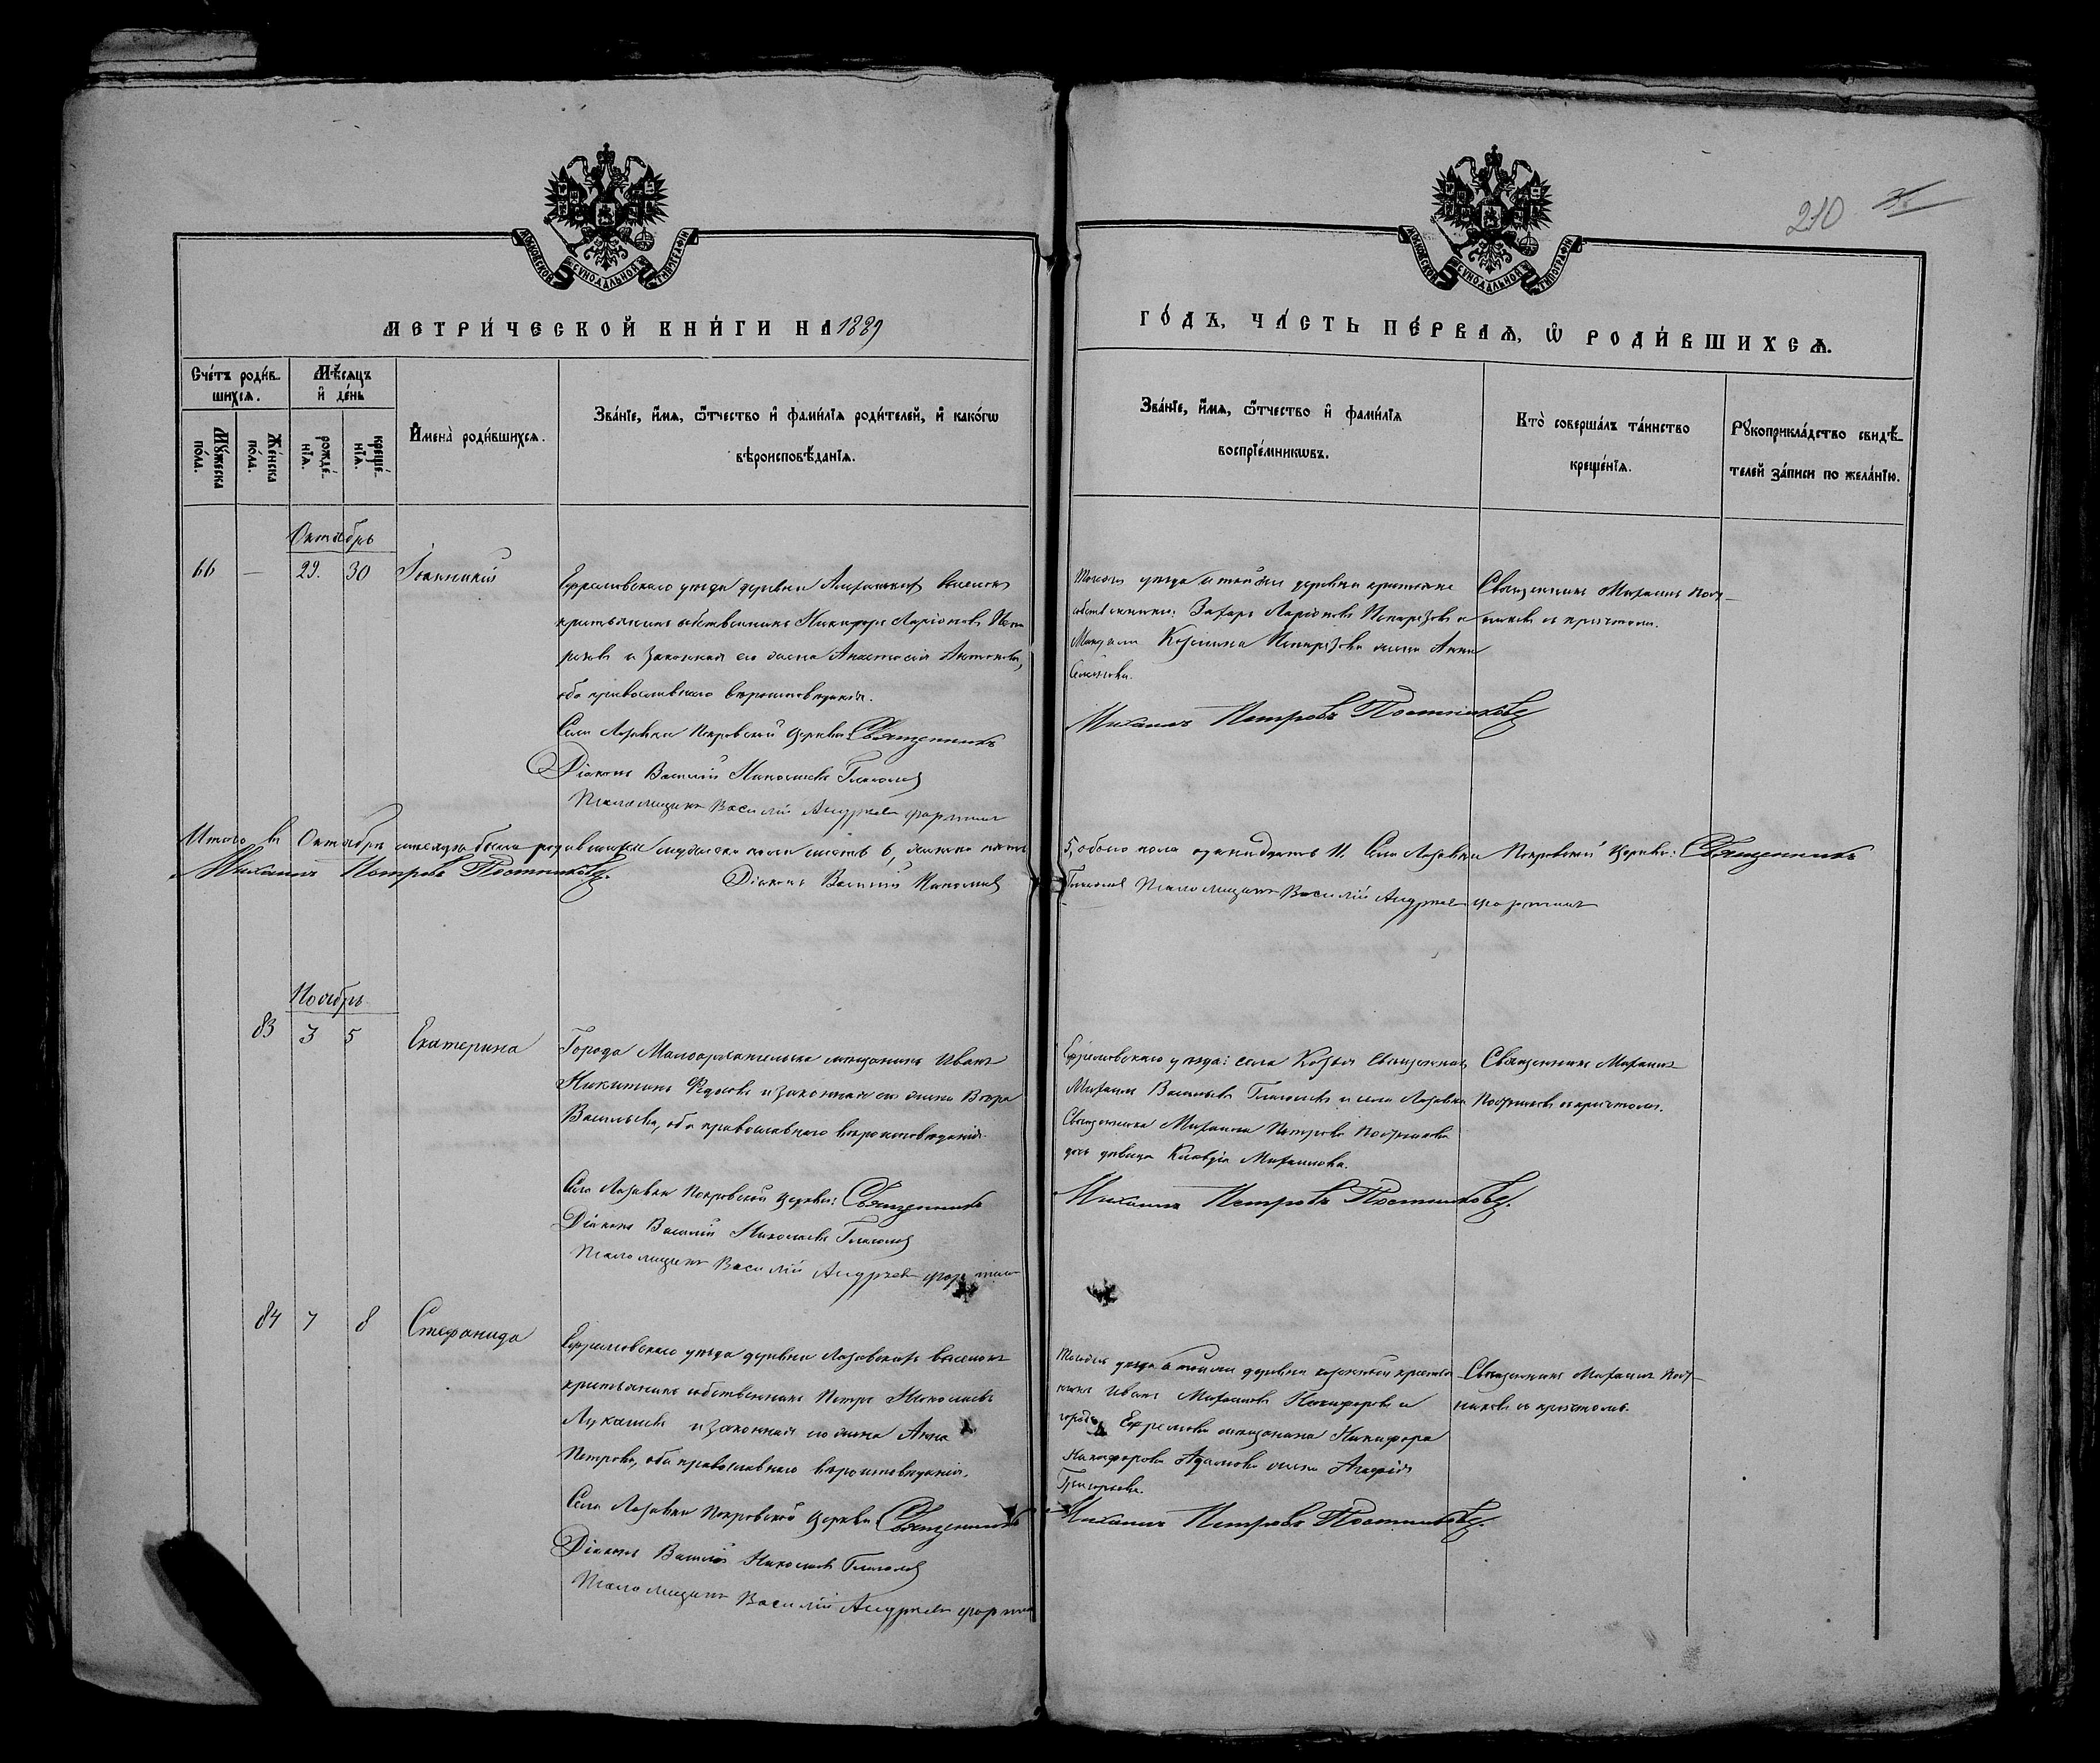 210
МОСКОВСКОЙ СѴНОДАЛЬНОЙ ТИПОГРАФІИ
МОСКОВСКОЙ СѴНОДАЛЬНОЙ ТИПОГРАФІИ
МЕТРИ́ЧЕСКОЙ КНИ́ГИ НА 1889
ГО́ДЪ, ЧА́СТЬ ПЕ́РВАѦ, Ѡ҆ РОДИ́ВШИХСѦ.
Сче́тъ роди́в-
шихсѧ.
Мѣ́сѧцъ
и҆ де́нь
Мꙋ́жеска
по́ла.
Же́нска
по́ла.
рожде́-
нїѧ.
креще́-
нїѧ.
И҆мена̀ роди́вшихсѧ.
Зва́нїе, и҆́мѧ, ѻ҆́тчество и҆ фами́лїѧ роди́телей, и҆ како́гѡ
вѣроисповѣ́данїѧ.
Зва́нїе, и҆́мѧ, ѻ҆́тчество и҆ фами́лїѧ
воспрїе́мникѡвъ.
Кто̀ соверша́лъ та́инство
креще́нїѧ.
Рꙋкоприкла́дство свидѣ́-
телей за́писи по жела́нїю.
Октябрь
66 — 29. 30 Іоанникій
Ефремовскаго уѣзда деревни
крестьянинъ собственникъ Никифоръ Ларіоновъ
и законная его жена Анастасія Антонова,
оба православнаго вѣроисповѣданія.
Села Лазавки Покровской Церкви Священникъ
Діаконъ Василій Николаевъ Глаголевъ
Псаломщикъ Василій Андреевъ
Тогоже уѣзда и тойже деревни крестьяне
собственники: Захаръ Ларіоновъ и
жена Анна
Семенова.
Михаилъ Петровъ Постниковъ
Священникъ Михаилъ Пост-
никовъ съ причтомъ.
Итого въ Октябрѣ мѣсяцѣ было родившихся мужеска пола шесть 6, женска пять
5, обоего пола одинадцать 11. Села Лазавки Покровской Церкви: Священникъ
Михаилъ Петровъ Постниковъ. Діаконъ Василій Николаевъ
Глаголевъ Псаломщикъ Василій Андреевъ
Ноябрь
83 3 5 Екатерина
Города Малоархангельска мѣщанинъ Иванъ
Никитинъ и законная его жена Вѣра
Васильева, оба православнаго вѣроисповѣданія.
Села Лазавки Покровской Церкви: Священникъ
Діаконъ Василій Николаевъ Глаголевъ
Псаломщикъ Василій Андреевъ
Ефремовскаго уѣзда: села Козья Священникъ
Михаилъ Васильевъ Глаголевъ и села Лазавки
Священника Михаила Петрова Постникова
дочь дѣвица Клавдія Михаилова.
Михаилъ Петровъ Постниковъ.
Священникъ Михаилъ
Постниковъ съ причтомъ.
84 7 8 Стефанида
Ефремовскаго уѣзда деревни Лазавскихъ выселокъ
крестьянинъ собственникъ Петръ Николаевъ
Лукашевъ и законная его жена Анна
Петрова, оба православнаго вѣроисповѣданія.
Села Лазавки Покровской Церкви Священникъ
Діаконъ Василій Николаевъ Глаголевъ
Псаломщикъ Василій Андреевъ
Тогоже уѣзда и тойже деревни
Иванъ Михаиловъ Никифоровъ и
города Ефремова мѣщанина Никифора
Никифорова Адамова жена Агафія
Григорьева.
Михаилъ Петровъ Постниковъ.
Священникъ Михаилъ Пост-
никовъ съ причтомъ.